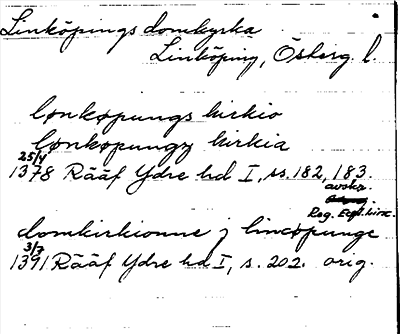 Linköpings domkyrka
Linköping, Östergg. l.
lønkøpungs kirkio
lønkøpungz kirkia
25/4
1378 Rääf Ydre hd I, ss. 182, 183.
avskr.
Reg. Eccl. Linc.
domkirkionne j lincøpunge
3/7
1391 Rääf Ydre hd I, s. 202. orig.